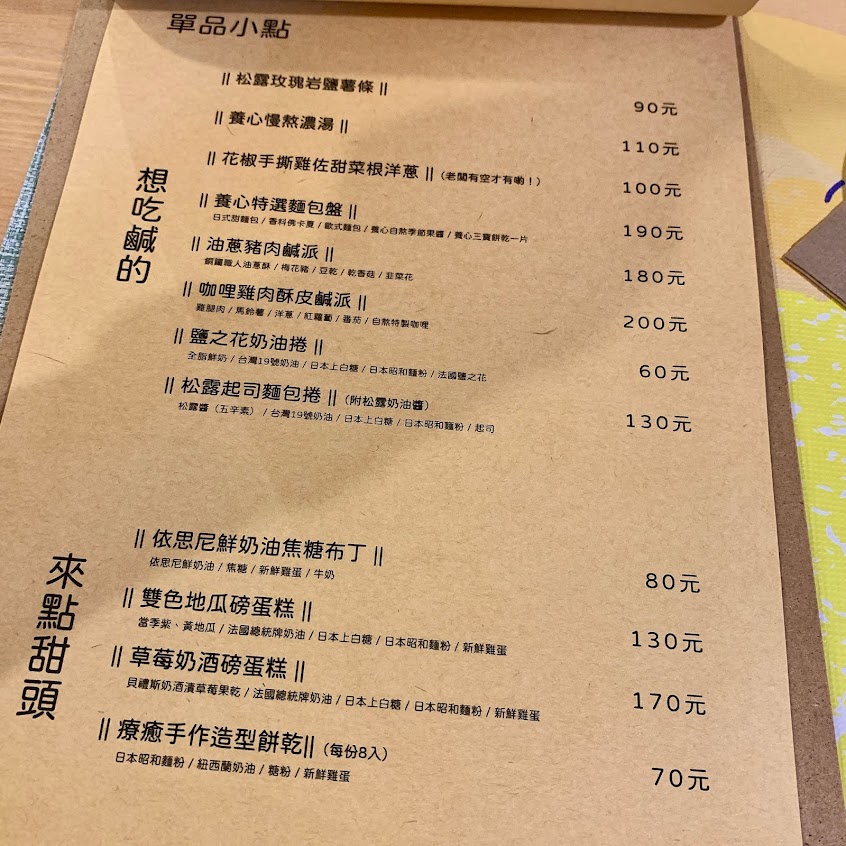 單品小點
想吃鹹的
|| 松露玫瑰岩鹽薯條 || 90元
|| 養心慢熬濃湯 || 110元
|| 花椒手撕雞佐甜菜根洋蔥 || (老闆有空才有喲！) 100元
|| 養心特選麵包盤 || 190元
日式甜麵包 / 香料佛卡夏 / 歐式麵包 / 養心自熬季節果醬 / 養心三寶餅乾一片
|| 油蔥豬肉鹹派 || 180元
銅鑼職人油蔥酥 / 梅花豬 / 豆乾 / 乾香菇 / 韭菜花
|| 咖哩雞肉酥皮鹹派 || 200元
雞腿肉 / 馬鈴薯 / 洋蔥 / 紅蘿蔔 / 番茄 / 自熬特製咖哩
|| 鹽之花奶油捲 || 60元
全脂鮮奶 / 台灣19號奶油 / 日本上白糖 / 日本昭和麵粉 / 法國鹽之花
|| 松露起司麵包捲 || (附松露奶油醬) 130元
松露醬（五辛素） / 台灣19號奶油 / 日本上白糖 / 日本昭和麵粉 / 起司
來點甜頭
|| 依思尼鮮奶油焦糖布丁 || 80元
依思尼鮮奶油 / 焦糖 / 新鮮雞蛋 / 牛奶
|| 雙色地瓜磅蛋糕 || 130元
當季紫、黃地瓜 / 法國總統牌奶油 / 日本上白糖 / 日本昭和麵粉 / 新鮮雞蛋
|| 草莓奶酒磅蛋糕 || 170元
貝禮斯奶酒漬草莓果乾 / 法國總統牌奶油 / 日本上白糖 / 日本昭和麵粉 / 新鮮雞蛋
|| 療癒手作造型餅乾|| (每份8入) 70元
日本昭和麵粉 / 紐西蘭奶油 / 糖粉 / 新鮮雞蛋